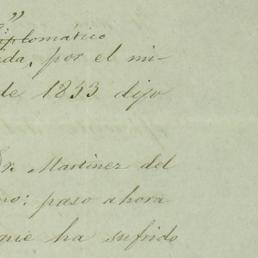 ”
diplomático
ida, por el mi-
de 1833 dijo
Sr. Martinez del
no: paso ahora
que ha sufrido